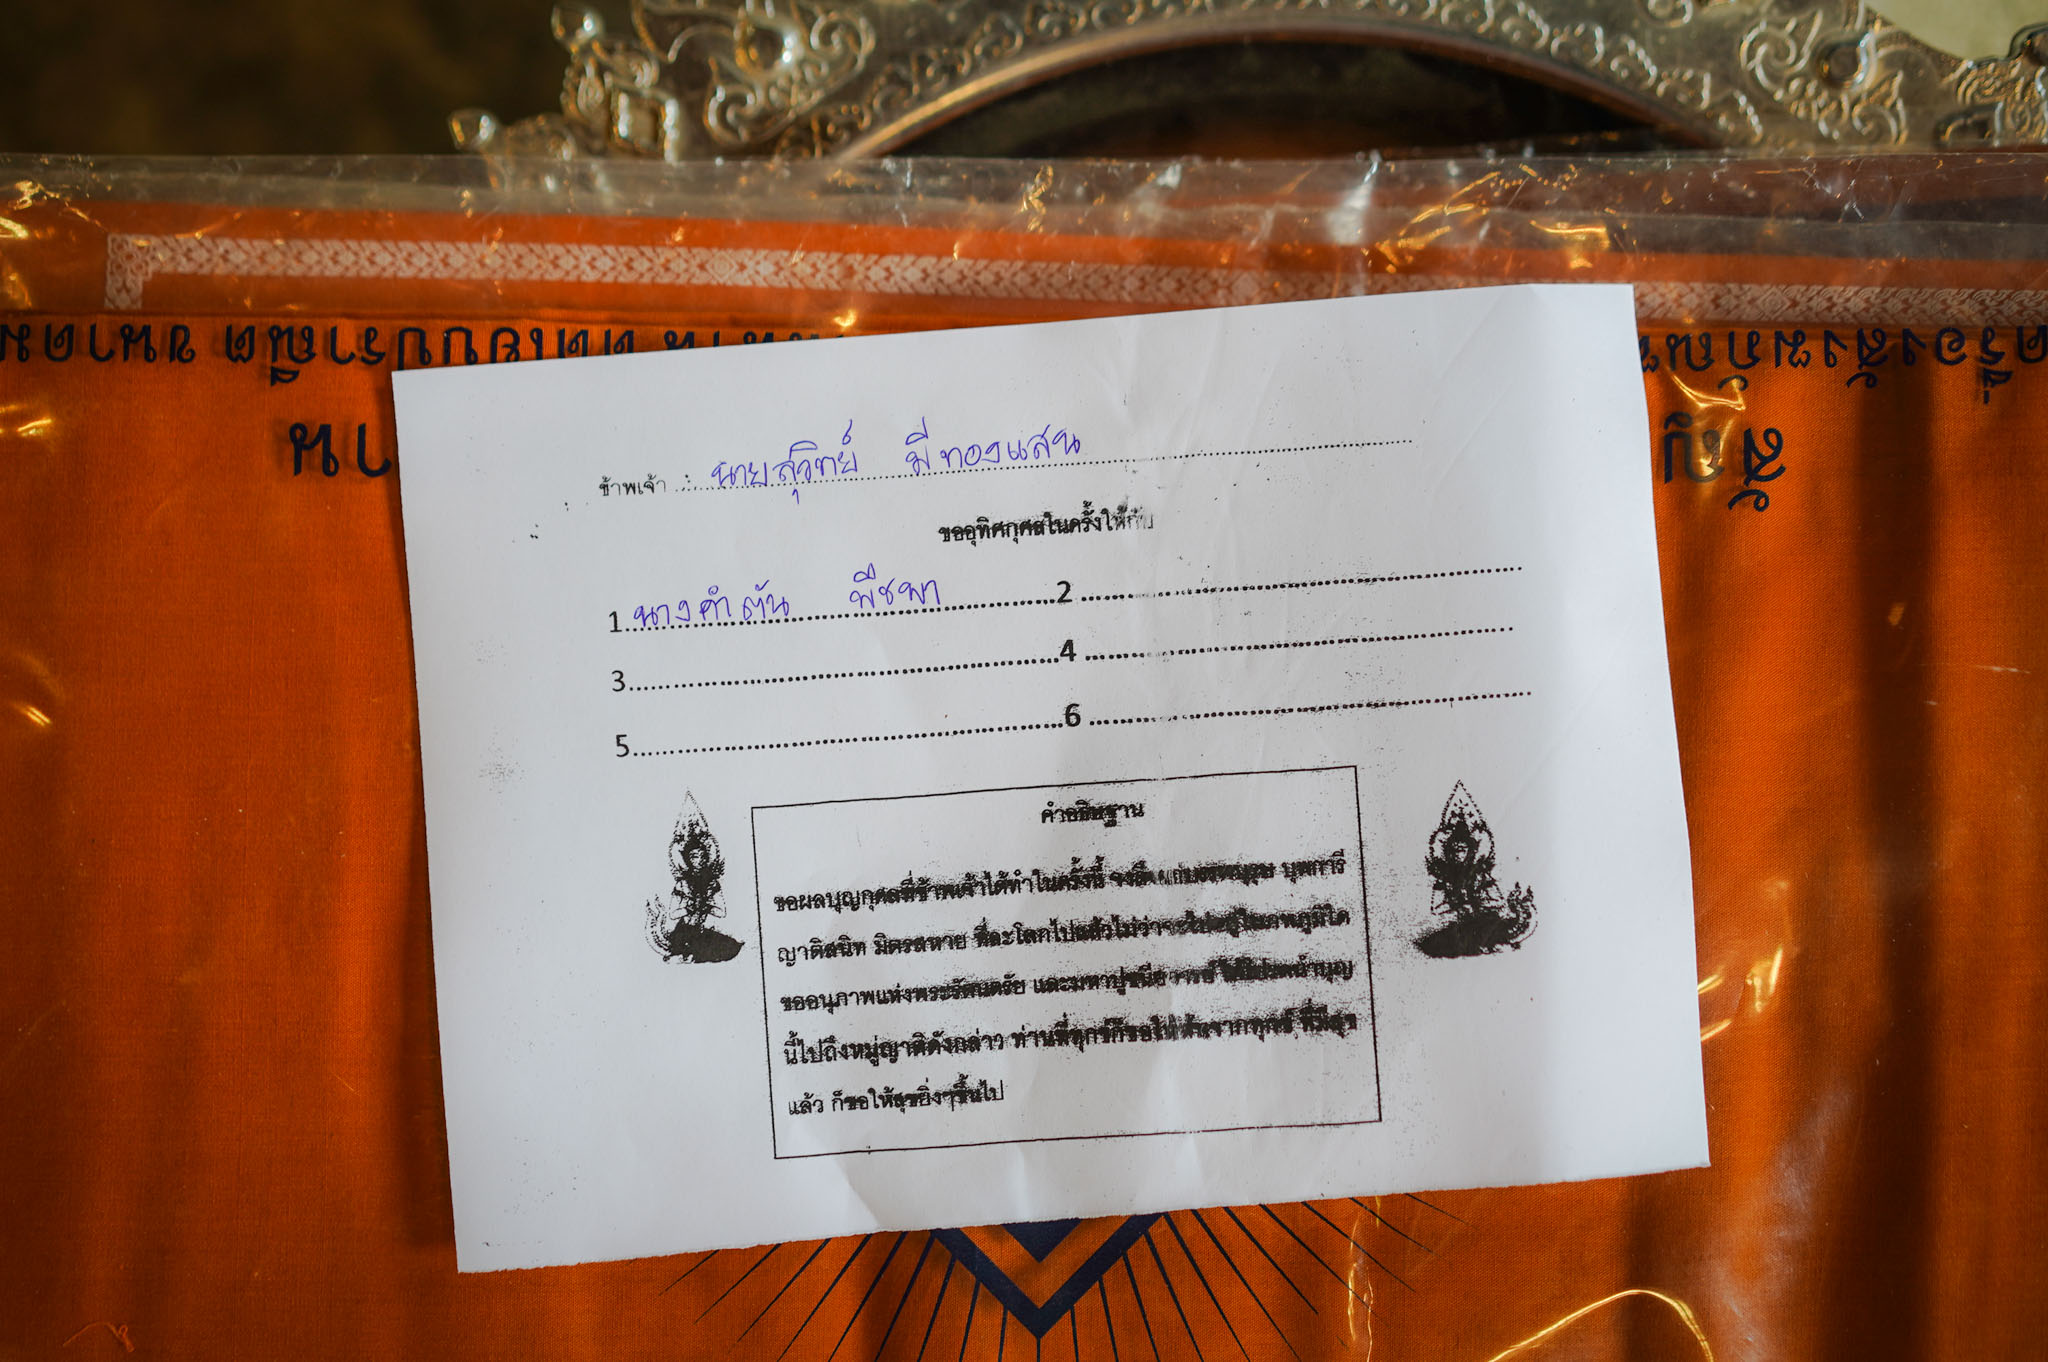 ข้าพเจ้า : นายสุวิทย์ มีทองแสน
ขออุทิศกุศลในครั้งให้กับ
1 นางคำตัน พืชพา 2
3 4
5 6
คำอธิษฐาน
ขอผลบุญกุศลที่ข้าพเจ้าได้ทำในครั้งนี้ จงถึง บรรพบุรุษ บุพการี
ญาติสนิท มิตรสหาย ที่ละโลกไปแล้วไม่ว่าจะไปอยู่ในภพภูมิใด
ขออนุภาพแห่งพระรัตนตรัย และมหาปูชนียาจารย์ ได้โปรดนำบุญ
นี้ไปถึงหมู่ญาติดังกล่าว ท่านที่ทุกข์ก็ขอให้พ้นจากทุกข์ ที่มีสุข
แล้ว ก็ขอให้สุขยิ่งๆขึ้นไป